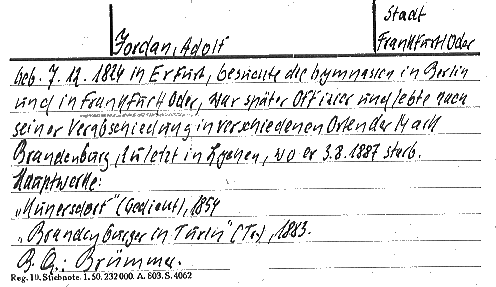 Jordan, Adolf
Stadt
Frankfurt/Oder
geb. 7. 12. 1824 in Erfurt, besuchte die Gymnasien in Berlin
und in Frankfurt Oder, war später Offizier und lebte nach
seiner Verabschiedung in verschiedenen Orten der Mark
Brandenburg, zuletzt in Lychen, wo er 3.8.1887 starb.
Hauptwerke:
„Kunersdorf" (Gedicht), 1854
„Brandenburger in Turin" (Tr.), 1883.
B. Q.: Brümmer.
Reg. 10. Stichnote. 1. 50. 232 000. A. 803. S. 4062